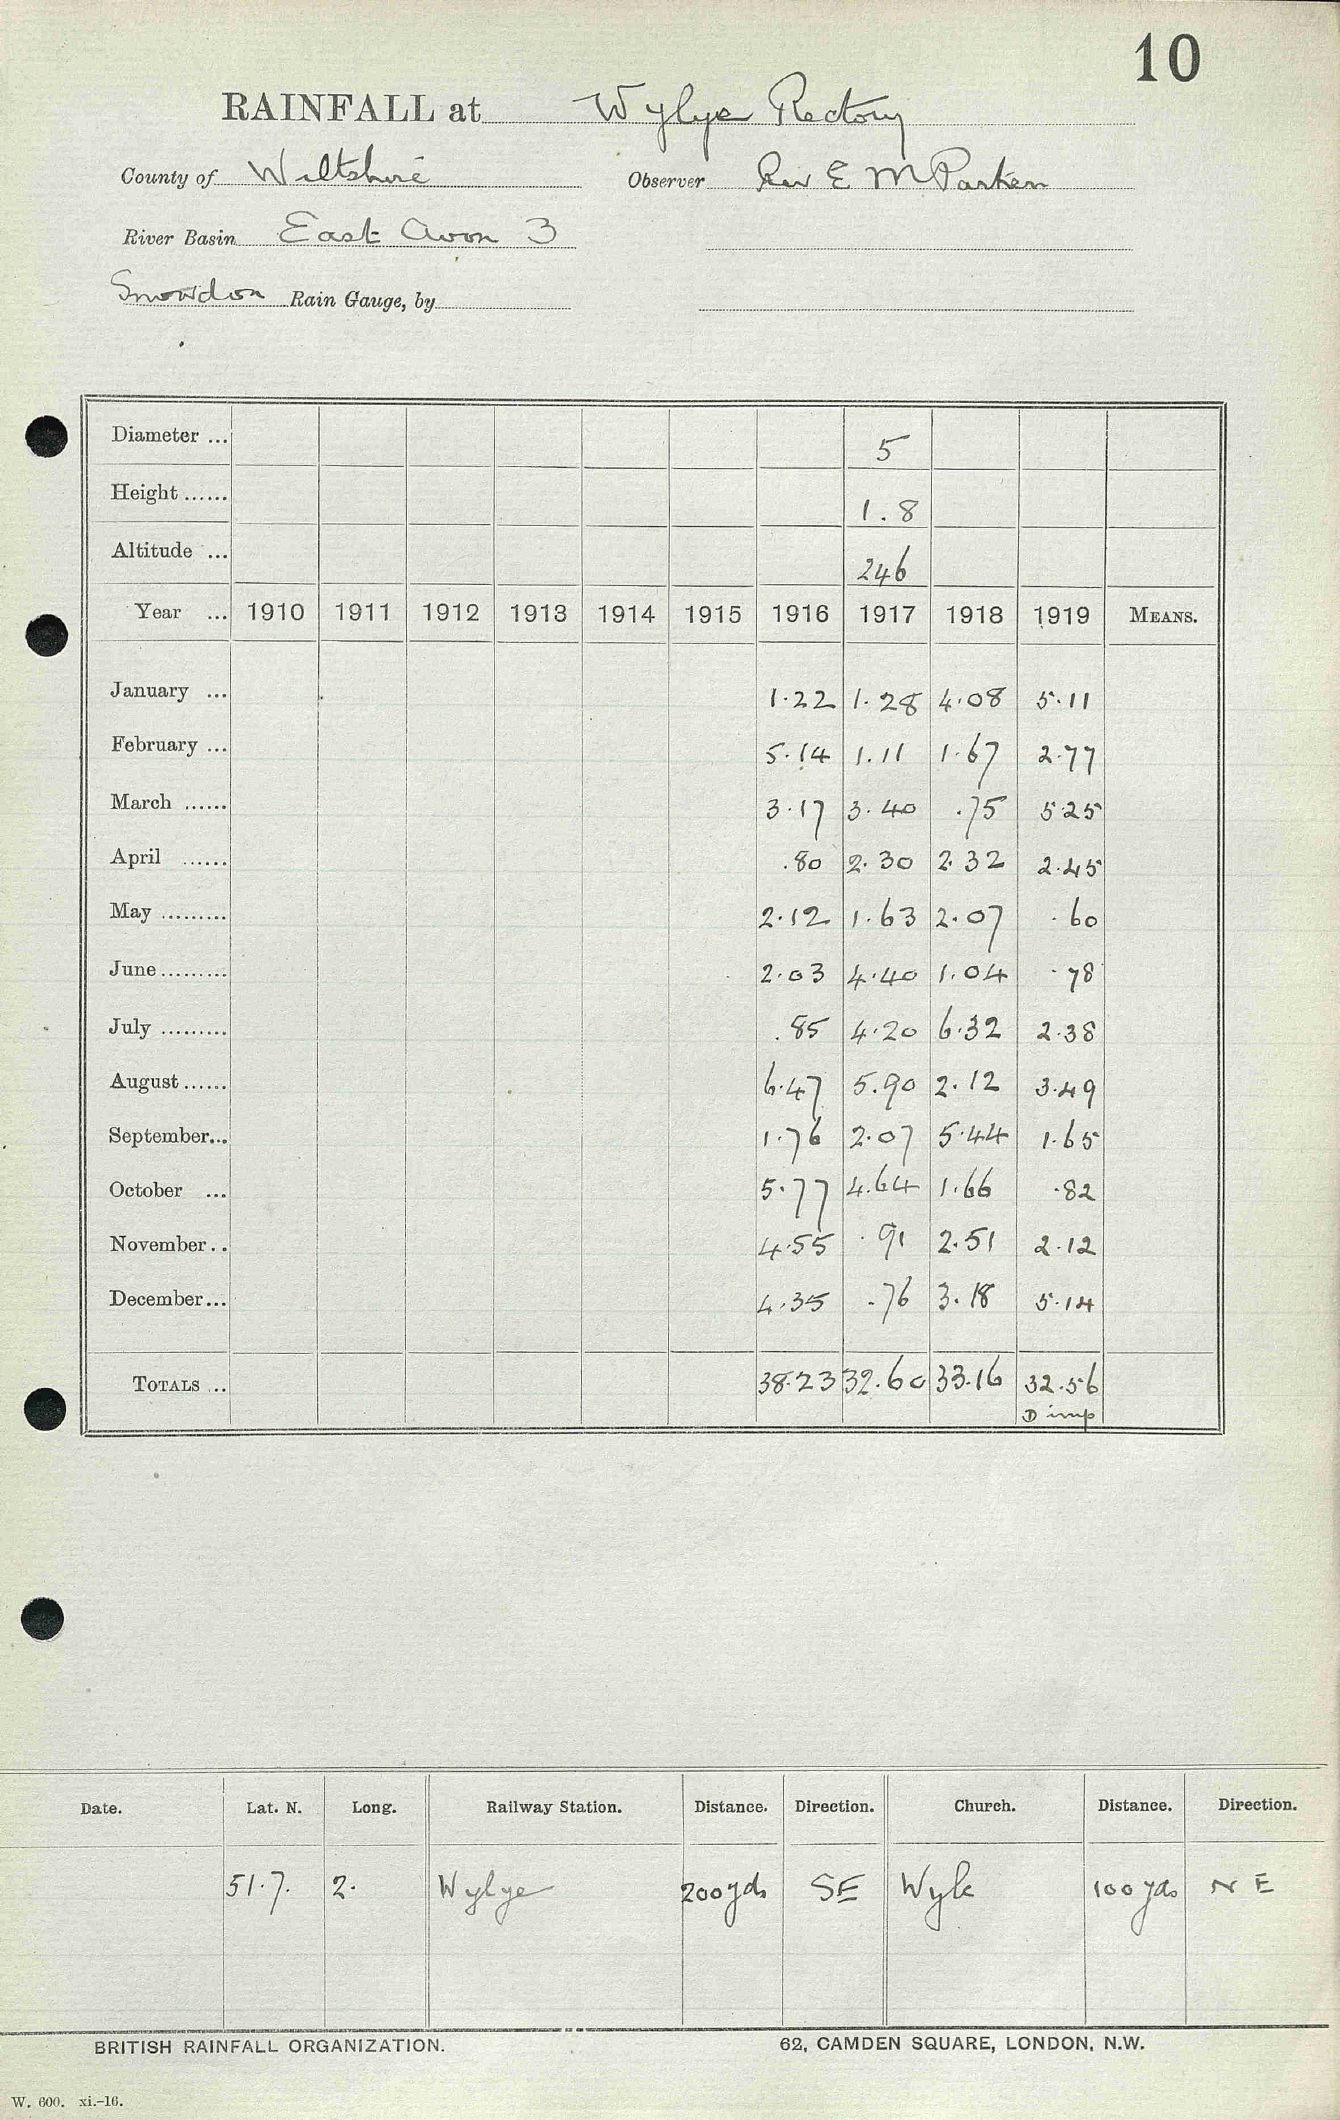 10
RAINFALL at Wylye Rectory
County of Wiltshire Observer Rev E M Parken
River Basin East Avon 3
Snowdon Rain Gauge, by
Diameter ... 5
Height ...... 1.8
Altitude ... 246
Year ... 1910 1911 1912 1913 1914 1915 1916 1917 1918 1919 MEANS.
January ... 1.22 1.28 4.08 5.11
February ... 5.14 1.11 1.67 2.77
March ...... 3.17 3.40 .75 5.25
April ...... .80 2.30 2.32 2.45
May ......... 2.12 1.63 2.07 .60
June ......... 2.03 4.40 1.04 .78
July ......... .85 4.20 6.32 2.38
August ...... 6.47 5.90 2.12 3.49
September... 1.76 2.07 5.44 1.65
October ... 5.77 4.64 1.66 .82
November .. 4.55 .91 2.51 2.12
December ... 4.35 .76 3.18 5.14
TOTALS ... 38.23 32.60 33.16 32.56
D imp
Date. Lat. N. Long. Railway Station. Distance. Direction. Church. Distance. Direction.
51.7. 2. Wylye 200 yds SE Wyle 100 yds N E
BRITISH RAINFALL ORGANIZATION. 62, CAMDEN SQUARE, LONDON, N.W.
W. 600. xi.-16.